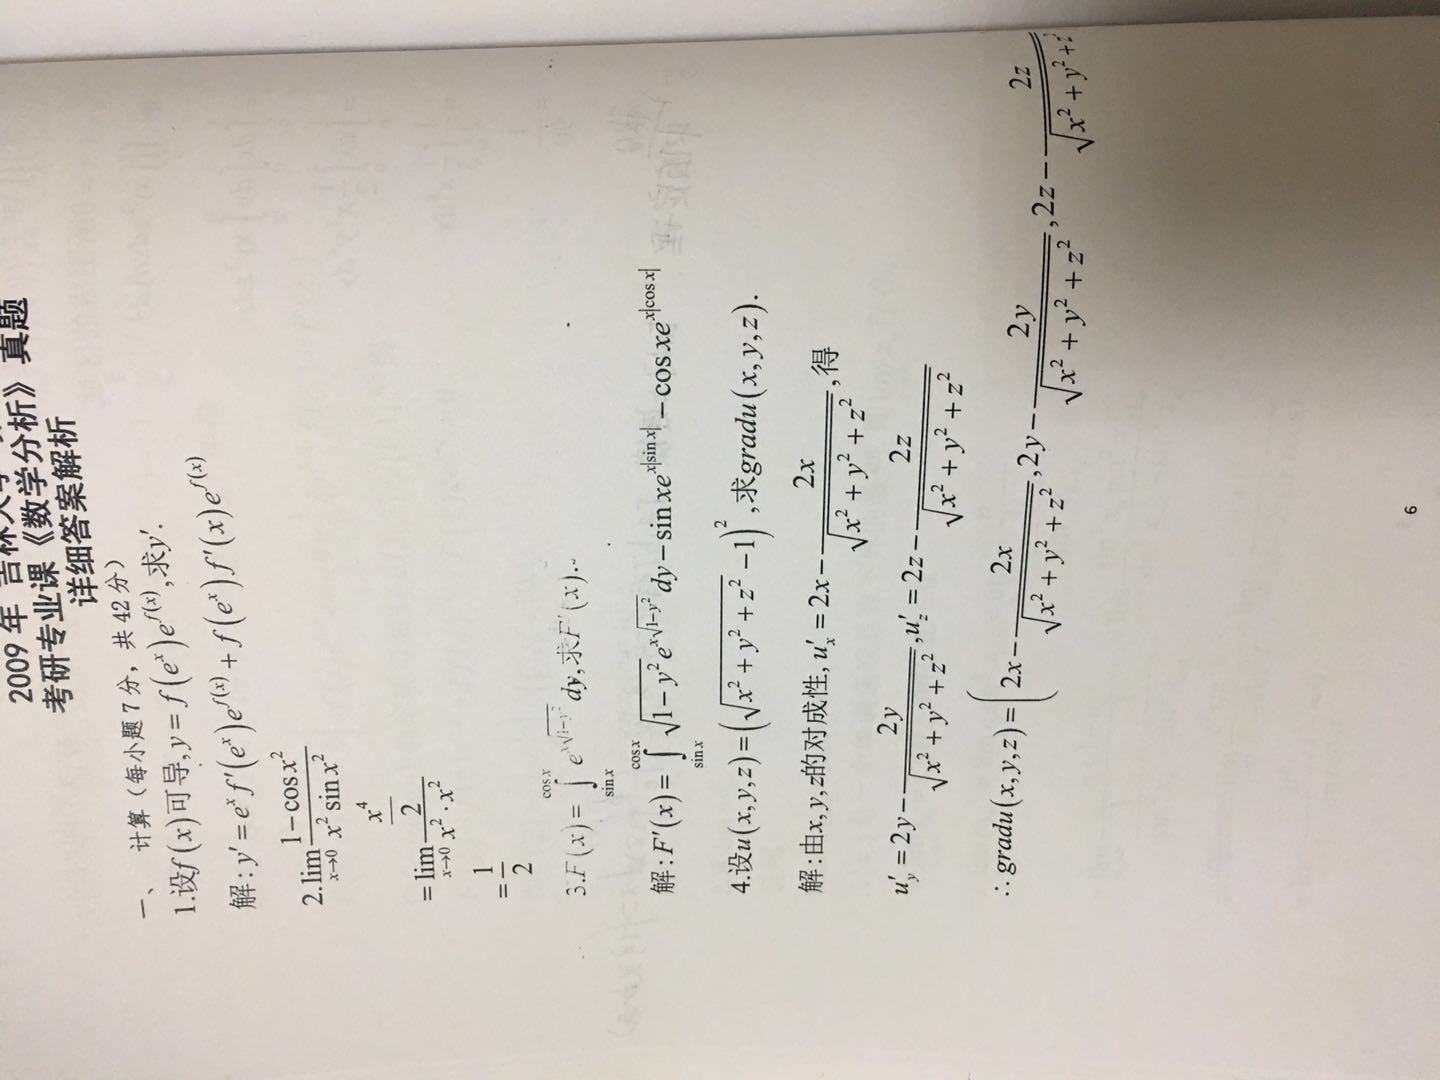 2009 年 吉林大学
考研专业课《数学分析》真题
详细答案解析
一、 计算（每小题 7 分，共 42 分）
1.设f(x)可导,y=f(e^x)e^{f(x)},求y'.
解:y'=e^x f'(e^x)e^{f(x)}+f(e^x)f'(x)e^{f(x)}
2.lim_{x→0} \frac{1-cos x^2}{x^2 sin x^2}
=lim_{x→0} \frac{\frac{x^4}{2}}{x^2·x^2}
=\frac{1}{2}
3.F(x)=∫_{sin x}^{cos x} e^{x\sqrt{1-y^2}}dy,求F'(x).
解:F'(x)=∫_{sin x}^{cos x} \sqrt{1-y^2}e^{x\sqrt{1-y^2}}dy-sin xe^{x|sin x|}-cos xe^{x|cos x|}
4.设u(x,y,z)=(\sqrt{x^2+y^2+z^2}-1)^2,求gradu(x,y,z).
解:由x,y,z的对成性,u'_x=2x-\frac{2x}{\sqrt{x^2+y^2+z^2}},得
u'_y=2y-\frac{2y}{\sqrt{x^2+y^2+z^2}},u'_z=2z-\frac{2z}{\sqrt{x^2+y^2+z^2}}
∴gradu(x,y,z)=(2x-\frac{2x}{\sqrt{x^2+y^2+z^2}},2y-\frac{2y}{\sqrt{x^2+y^2+z^2}},2z-\frac{2z}{\sqrt{x^2+y^2+z
6